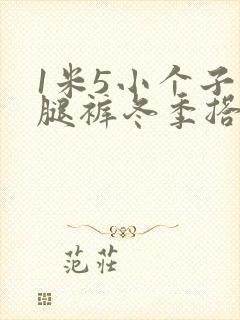 1米5小个子
腿裤冬季搭
范荘